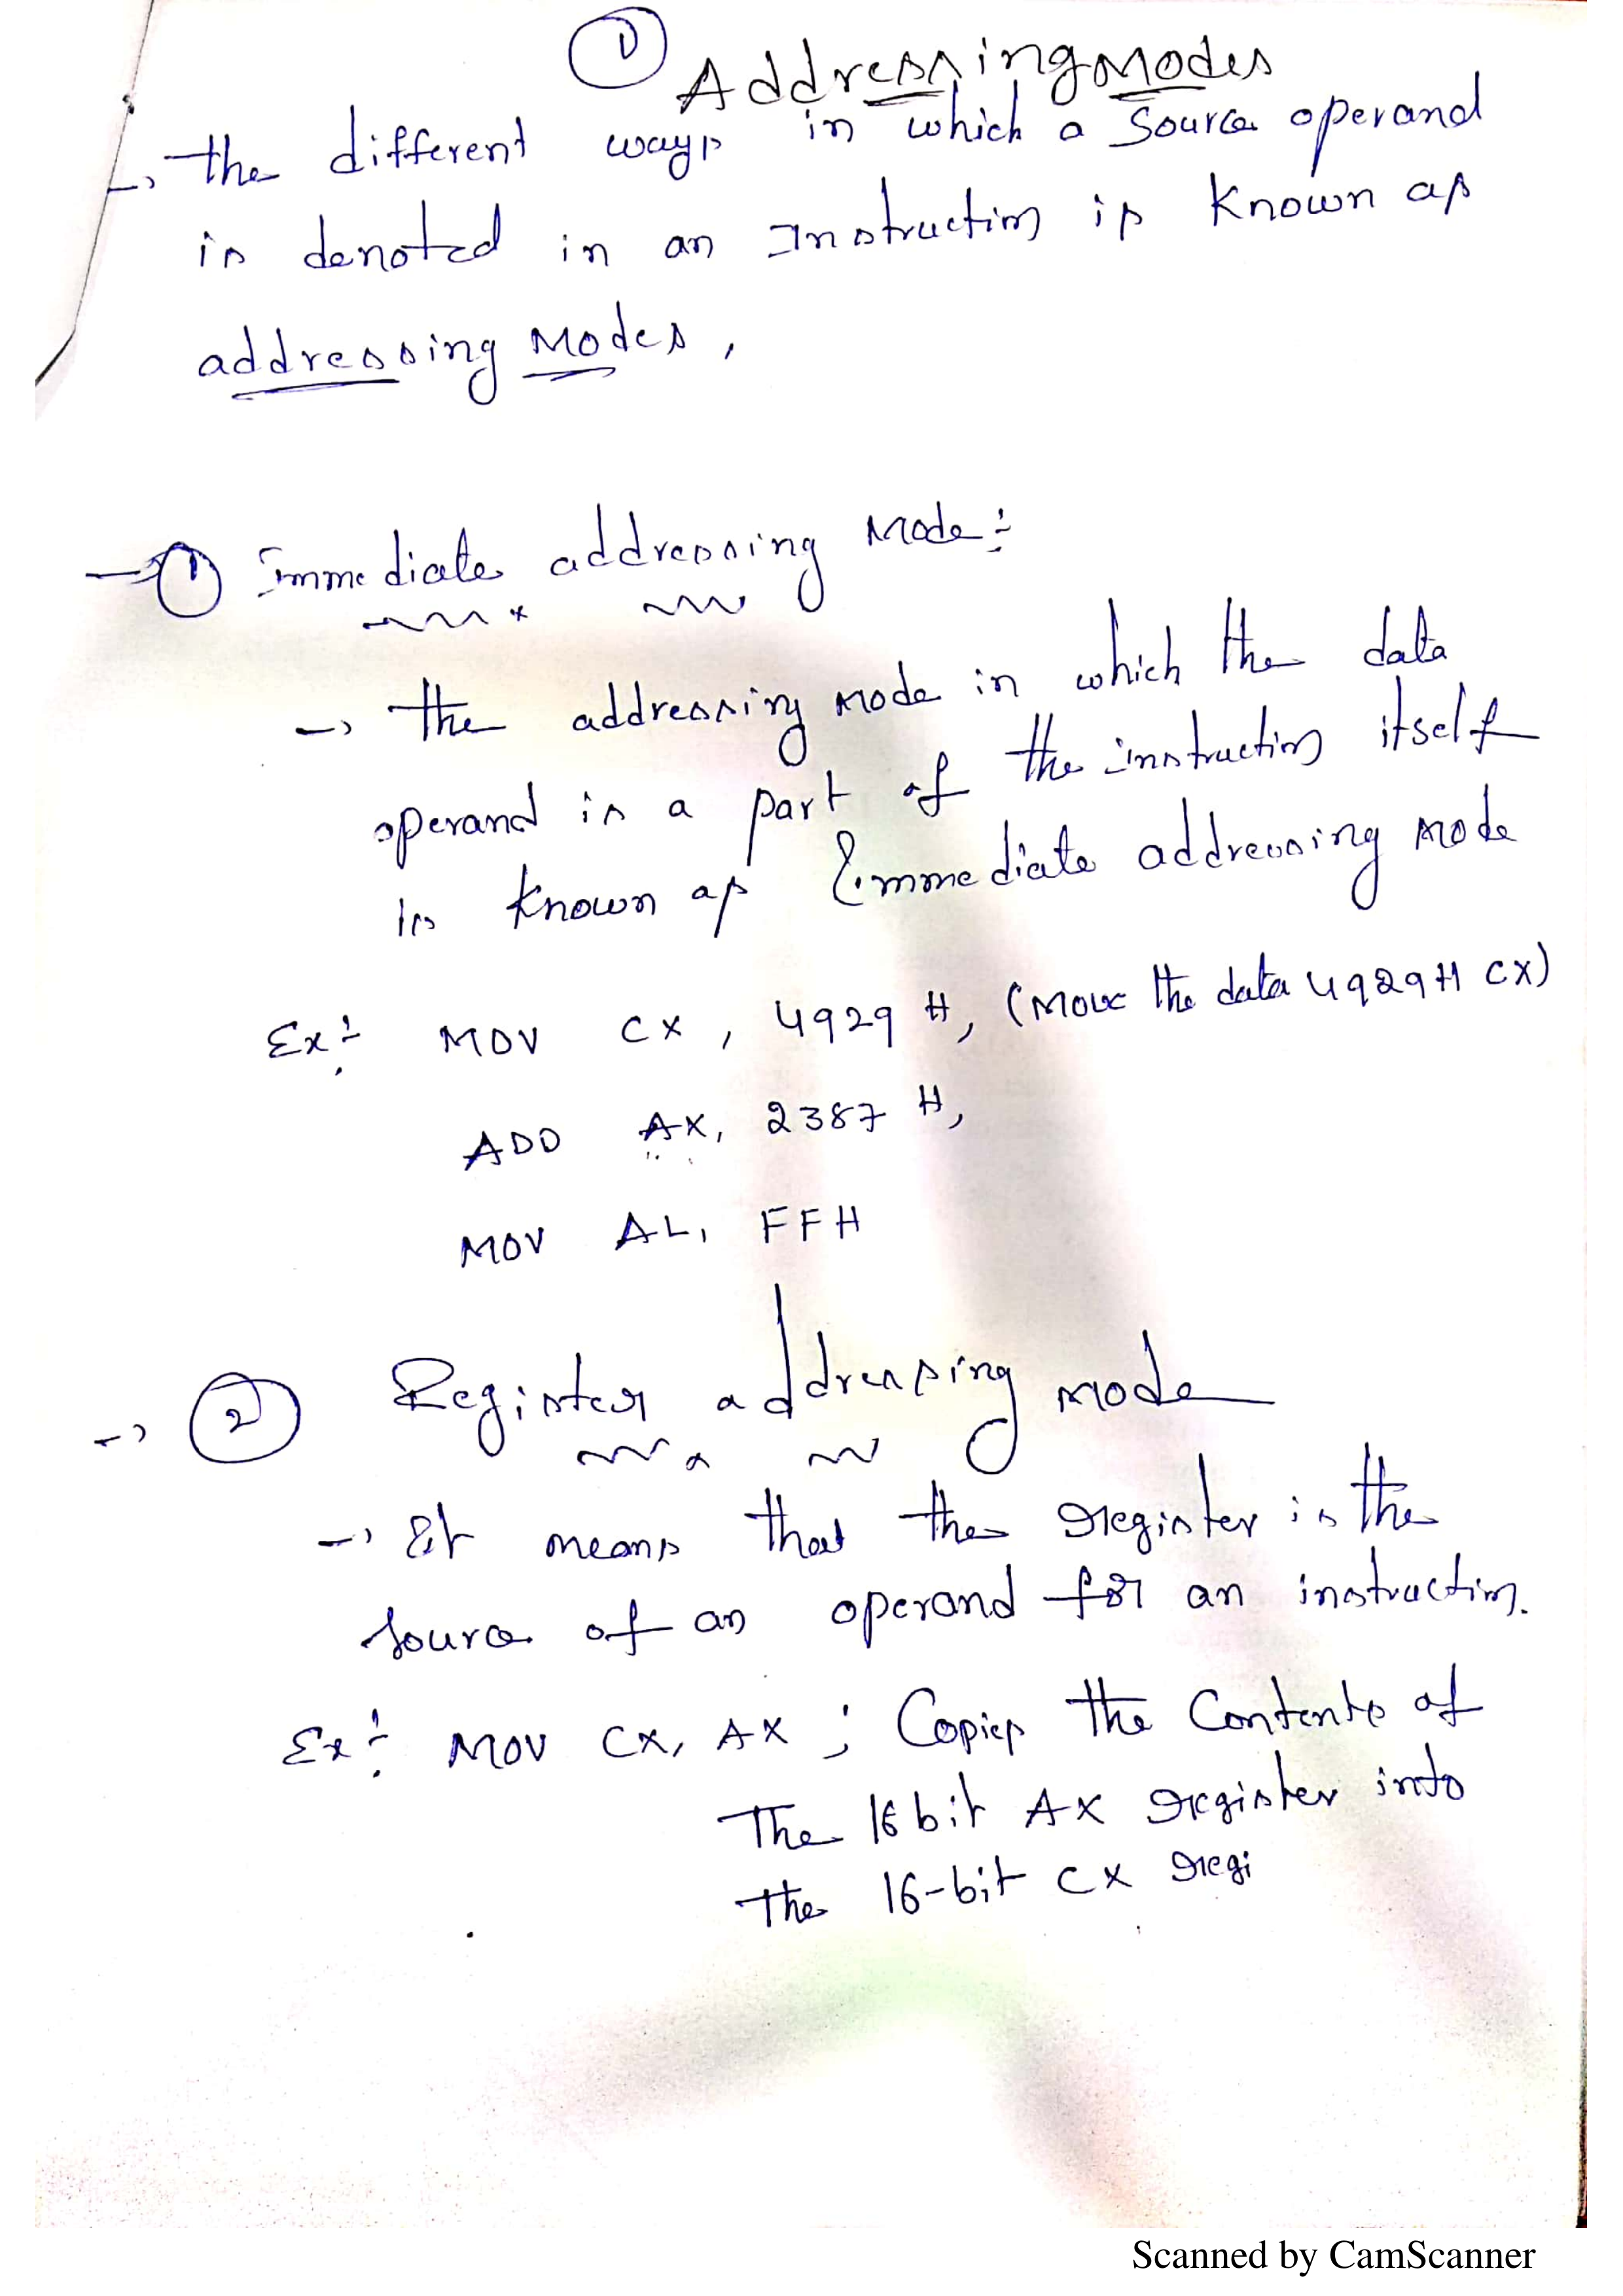 1
Addressing Modes
→ the different ways in which a source operand
is denoted in an Instruction is known as
addressing Modes,
→ 1 Immediate addressing Mode:
→ the addressing mode in which the data
operand is a part of the instruction itself
is known as Immediate addressing mode
Ex: MOV CX, 4929 H, (Move the data 4929H CX)
ADD AX, 2387 H,
MOV AL, FFH
→ 2 Register addressing mode
→ It means that the register is the
source of an operand for an instruction.
Ex: MOV CX, AX ; Copies the Contents of
The 16 bit AX register into
the 16-bit CX regi
Scanned by CamScanner